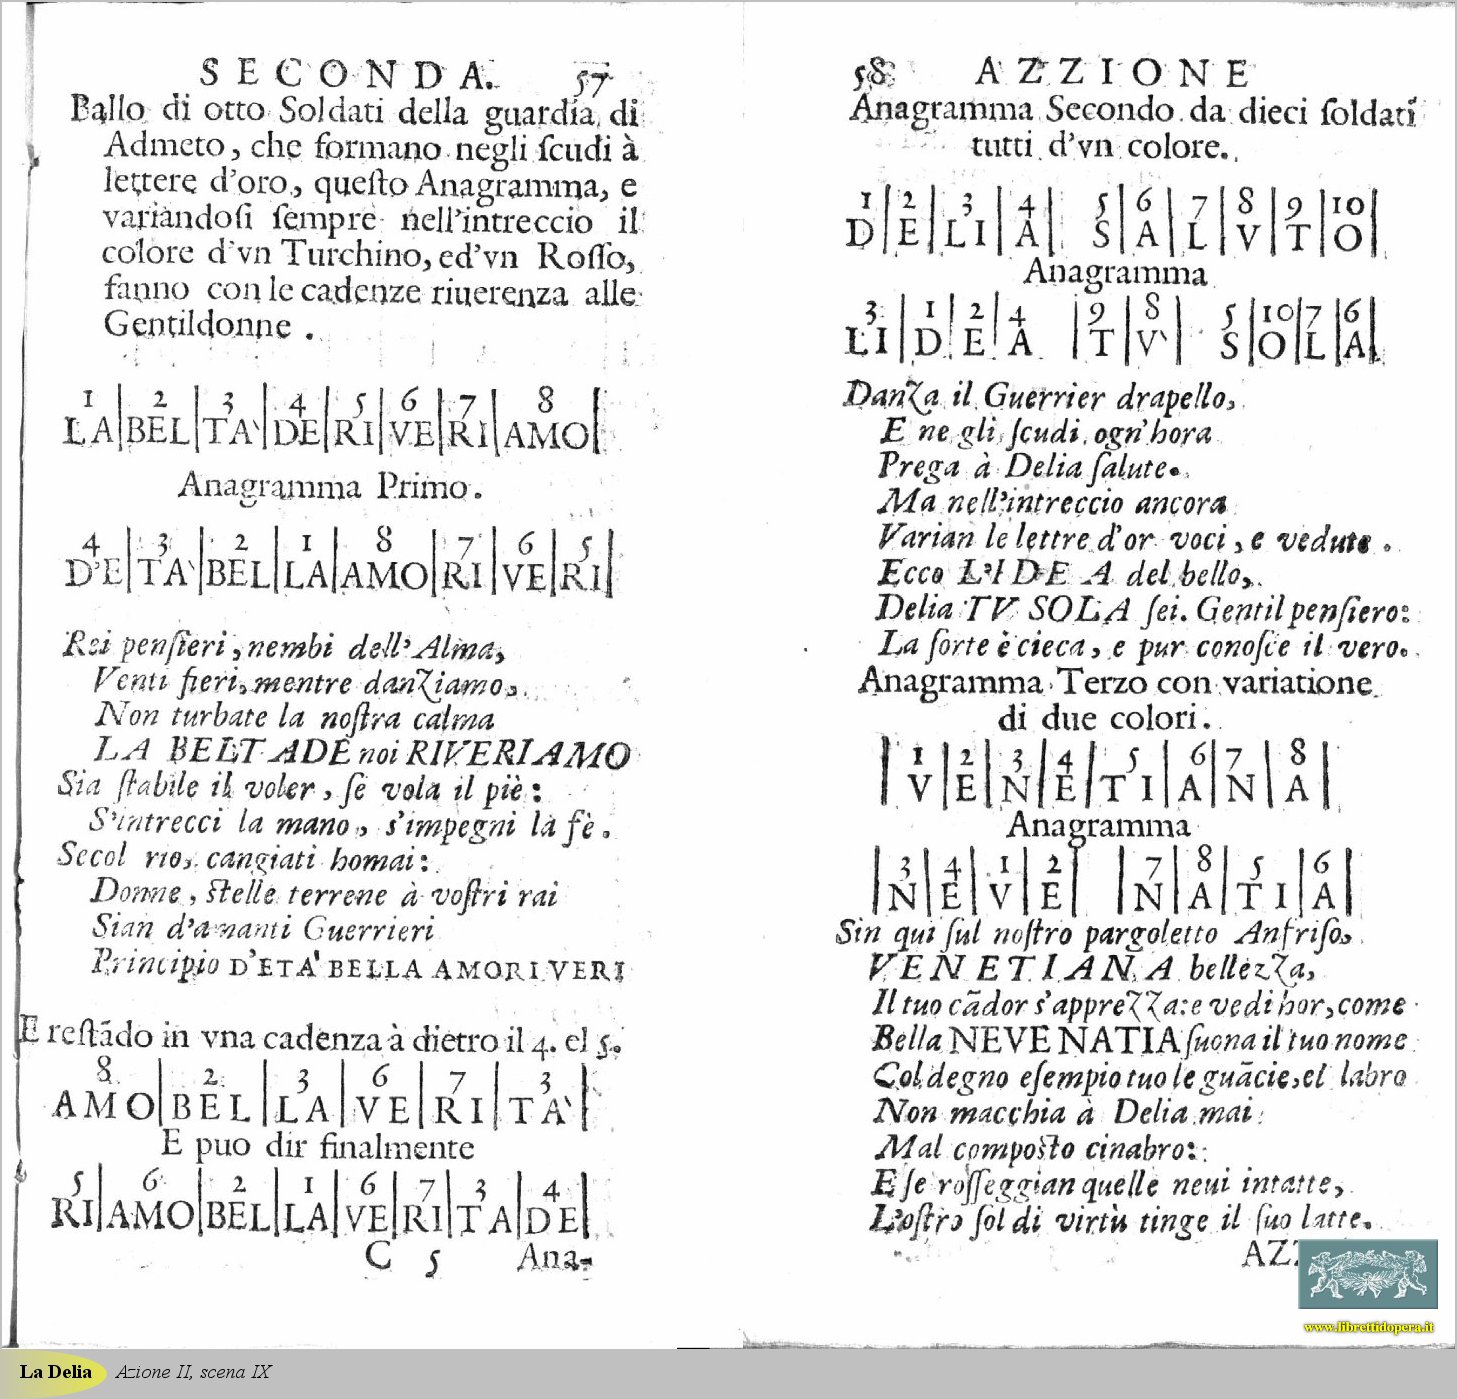 SECONDA. 57
Ballo di otto Soldati della guardia di
Admeto, che formano negli ſcudi à
lettere d'oro, queſto Anagramma, e
variandoſi ſempre nell'intreccio il
colore d'vn Turchino, ed'vn Roſſo,
fanno con le cadenze riuerenza alle
Gentildonne .
1 2 3 4 5 6 7 8
LA|BEL|TA'|DE|RI|VE|RI|AMO|
Anagramma Primo.
4 3 2 1 8 7 6 5
D'E|TA'|BEL|LA|AMO|RI|VE|RI|
Rei penſieri, nembi dell'Alma,
Venti fieri, mentre danziamo,
Non turbate la noſtra calma
LA BELTADE noi RIVERIAMO
Sia ſtabile il voler, ſe vola il piè:
S'intrecci la mano, s'impegni la fè.
Secol rio, cangiati homai:
Donne, ſtelle terrene à voſtri rai
Sian d'amanti Guerrieri
Principio D'ETA' BELLA AMORI VERI
E reſtãdo in vna cadenza à dietro il 4. el 5.
8 2 3 6 7 3
AMO|BEL|LA|VE|RI|TA'|
E puo dir finalmente
5 6 2 1 6 7 3 4
RI|AMO|BEL|LA|VE|RI|TA|DE|
C 5 Ana-
58 AZZIONE
Anagramma Secondo da dieci ſoldati
tutti d'vn colore.
1 2 3 4 5 6 7 8 9 10
D|E|LI|A| S|A|L|V|T|O|
Anagramma
3 1 2 4 9 8 5 10 7 6
LI|D|E|A |T|V'| S|O|L|A|
Danza il Guerrier drapello,
E ne gli ſcudi ogn'hora
Prega à Delia ſalute.
Ma nell'intreccio ancora
Varian le lettre d'or voci, e vedute .
Ecco L'IDEA del bello,
Delia TV SOLA ſei. Gentil penſiero:
La ſorte è cieca, e pur conoſce il vero.
Anagramma Terzo con variatione
di due colori.
1 2 3 4 5 6 7 8
|V|E|N|E|TI|A|N|A|
Anagramma
3 4 1 2 7 8 5 6
|N|E|V|E| |N|A|TI|A|
Sin qui ſul noſtro pargoletto Anfriſo,
VENETIANA bellezza,
Il tuo cãdor s'apprezza: e vedi hor, come
Bella NEVE NATIA ſuona il tuo nome
Col degno eſempio tuo le guãcie, el labro
Non macchia à Delia mai
Mal compoſto cinabro:
E ſe roſſeggian quelle neui intatte,
L'oſtro ſol di virtù tinge il ſuo latte.
AZ
www.librettidopera.it
La Delia Azione II, scena IX